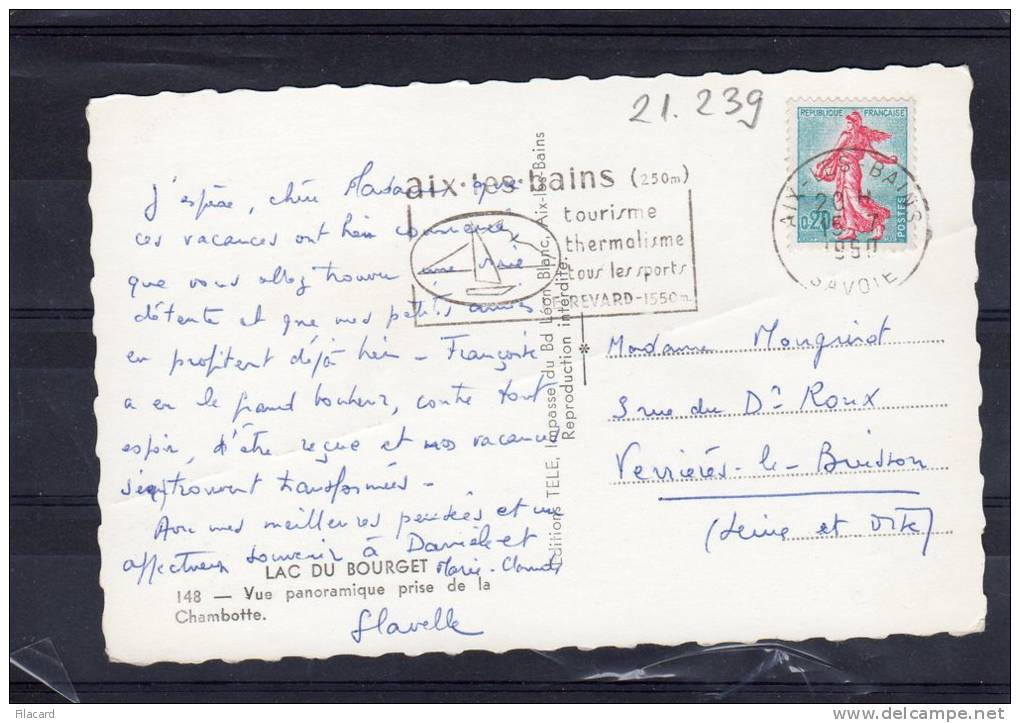 21.239
REPUBLIQUE FRANÇAISE
0,20
POSTES
AIX-LES-BAINS
SAVOIE
aix·les·bains (250m)
tourisme
thermalisme
tous les sports
REVARD-1550m
J'espère, chère Madame que
ces vacances ont bien commencé,
que vous allez trouver une vraie
détente et que mes petites amies
en profitent déjà bien - Françoise
a eu le grand bonheur, contre tout
espoir, d'être reçue et nos vacances
s'en trouvent transformées -
Avec mes meilleures pensées et un
affectueux souvenir à Danièle et
Marie-Claude
LAC DU BOURGET
148 — Vue panoramique prise de la
Chambotte.
Editions TELE, Impasse du Bd Léon Blanc, Aix-les-Bains
Reproduction interdite.
Madame
3 rue du Dr Roux
Verrières-le-Buisson
(Seine et Oise)
Filacard
www.delcampe.net